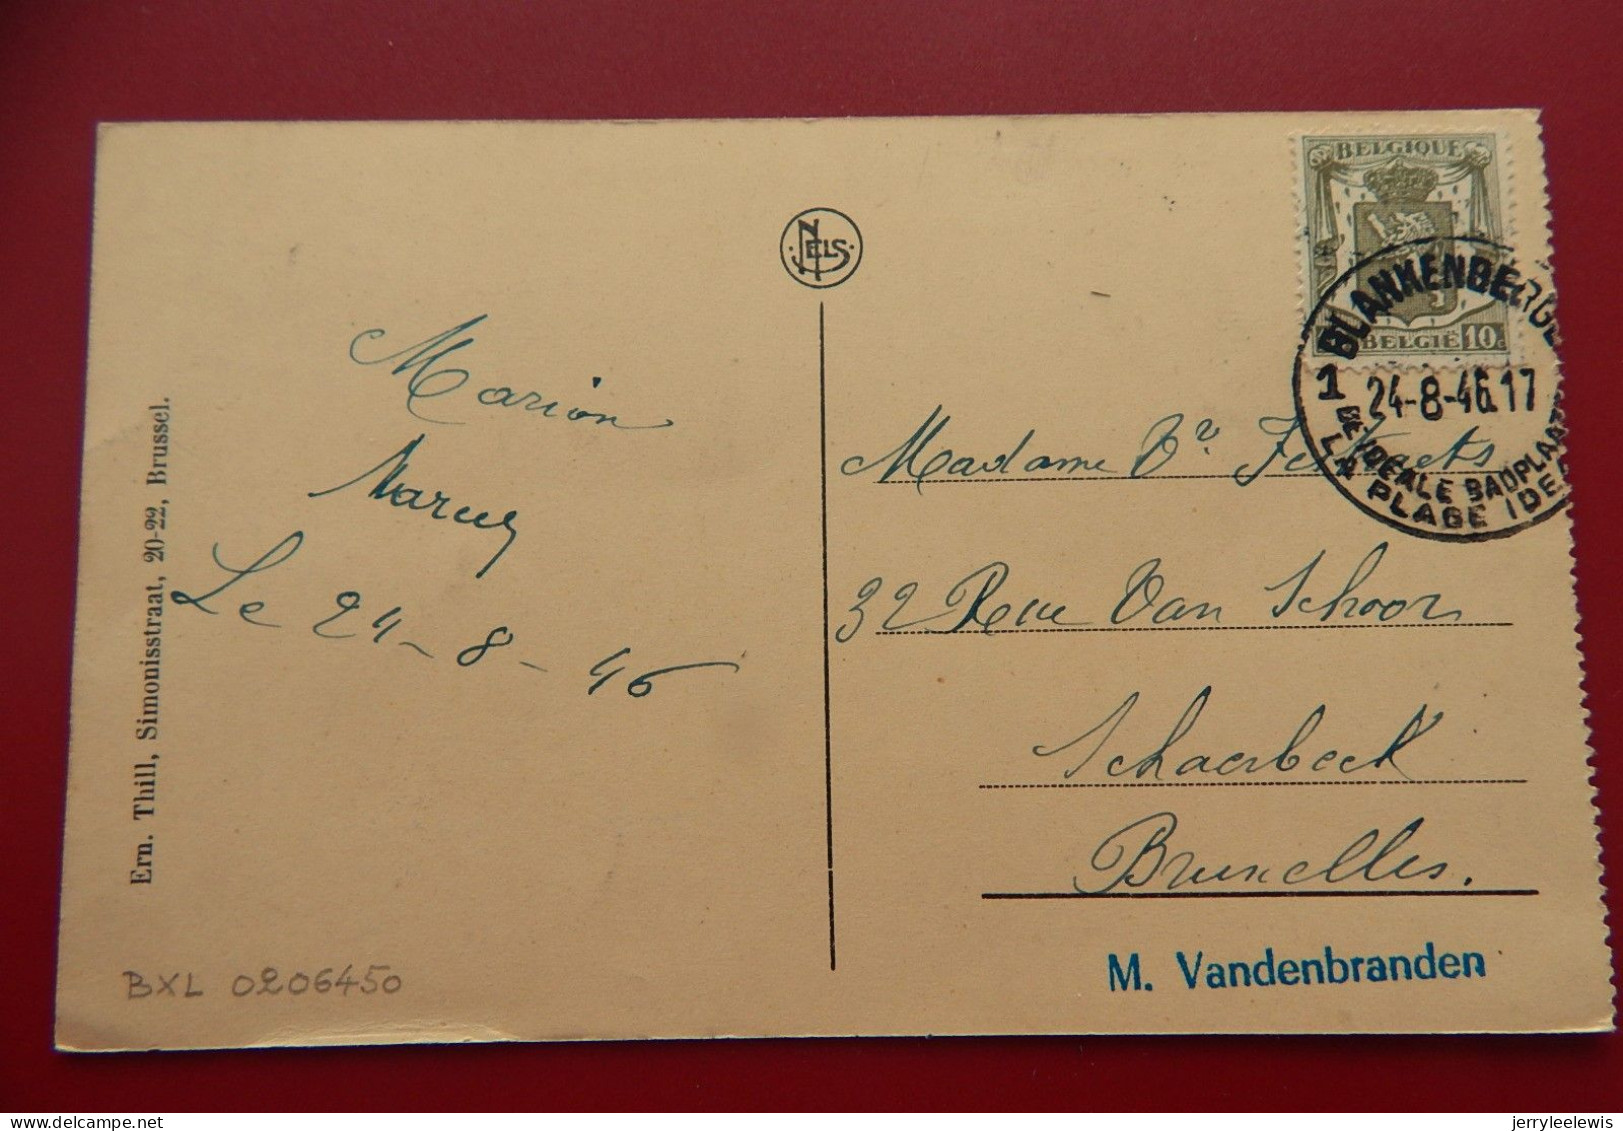 Ern. Thill, Simonisstraat, 20-22, Brussel.
Marion
Marcus
Le 24-8-46
BXL 0206450
NELS
BELGIQUE
BELGIË 10c
BLANKENBERGE
1 24-8-46.17
DE IDEALE BADPLAAT
LA PLAGE IDE
Madame Vᵉ
32 Rue Van Schoor
Schaerbeek
Bruxelles.
M. Vandenbranden
delcampe.net
jerryleelewis